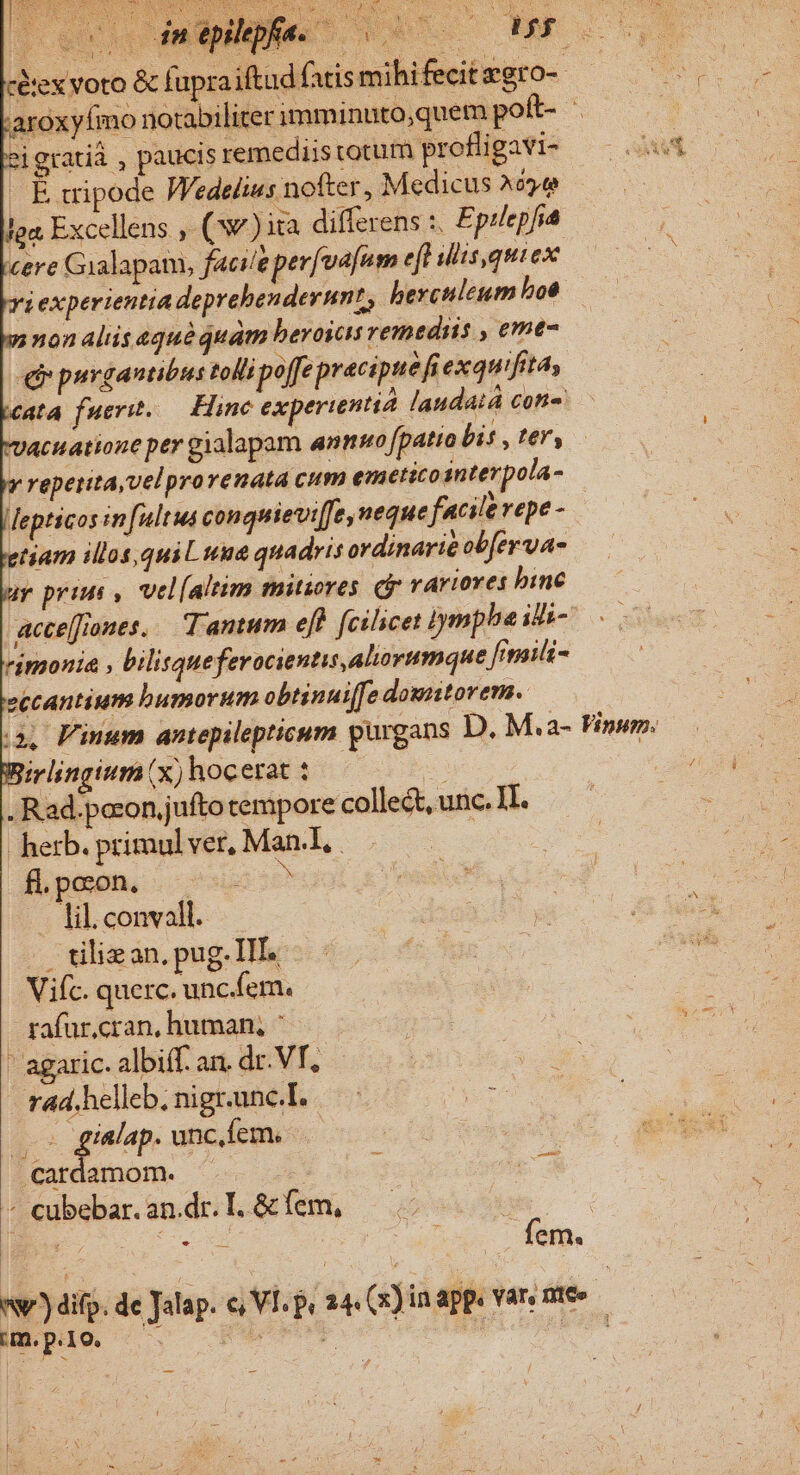 in epilepſia. 155
cè:ex voto & ſupra iſtud ſatis mihi fecit ægro-
aroxyſmo notabiliter imminuto, quem poſt-
ei gratiâ, paucis remediis totum profligavi-
E tripode Wedelius noſter, Medicus λόγῳ
Excellens, (w) ita differens: Epilepſia
cere Gialapam, facilè perſvaſum eſt illis, qui ex
ri experientia deprehenderunt, herculeum hoc
m non aliis æquè quàm heroicis remediis, eme-
& purgantibus tolli poſſe præcipuè ſi exquiſita,
cata fuerit. Hinc experientiâ laudatâ con-
vacuatione per gialapam annuo ſpatio bis, ter,
r repetita, vel pro re nata cum emetico interpola-
lepticos inſultus conquieviſſe, neque facilè repe-
etiam illos, qui L unæ quadris ordinariè obſerva-
ur prius, vel ſaltim mitiores & rariores hinc
acceſſiones. Tantum eſt ſcilicet lymphæ illi-
rimoniæ, bilisque ferocientis, aliorumque ſimili-
eccantium humorum obtinuiſſe domitorem.
2, Vinum antepilepticum purgans D. M. a- Vinum.
Birlingium (x) hoc erat:
. Rad. pœon. juſto tempore collect, unc. II.
herb. primul ver, Man. I,
fl. pœon.
lil. convall.
tiliæ an. pug. III.
Viſc. querc. unc. ſem.
raſur. cran. human,
agaric. albiſſ. an. dr. VI,
rad. helleb. nigr. unc. I.
gialap. unc, ſem.
cardamom.
cubebar. an. dr. I. & ſem,
ſem.
w) diſp. de Jalap. c, VI. p, 24. (x) in app. var,
m. p. 10.